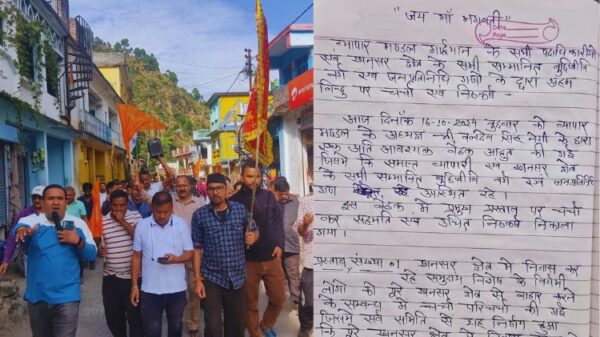 "जय माँ भगवती"
व्यापार मण्डल माईथान के सभी पदाधिकारीगण
एवं खनसर क्षेत्र के सभी सम्मानित बुद्धिजीवि
वर्ग एवं जनप्रतिनिधि गणों के द्वारा अहम
बिन्दु पर चर्चा एवं निष्कर्ष -
आज दिनाँक 16-10-2024 बुधवार को व्यापार
मण्डल के अध्यक्ष श्री बलदेव सिंह नेगी के द्वारा
एक अति आवश्यक बैठक आहुत की गई
जिसमें कि समस्त व्यापारी एवं खनसर क्षेत्र
के सभी सम्मानित बुद्धिजीवि वर्ग एवं जनप्रतिनिधि
गण उपस्थित रहे।
इस बैठक में प्रमुख प्रस्ताव पर चर्चा
कर सहमति एवं उचित निष्कर्ष निकाला
गया।
प्रस्ताव संख्या 01 खनसर क्षेत्र में निवास कर
रहे समुदाय विशेष के विधर्मी
लोगों को पूरे खनसर क्षेत्र से बाहर करने
के सम्बन्ध में चर्चा परिचर्चा की गई
जिसमें सर्व समिति से यह निर्णय हुआ
कि पूरे खनसर क्षेत्र में